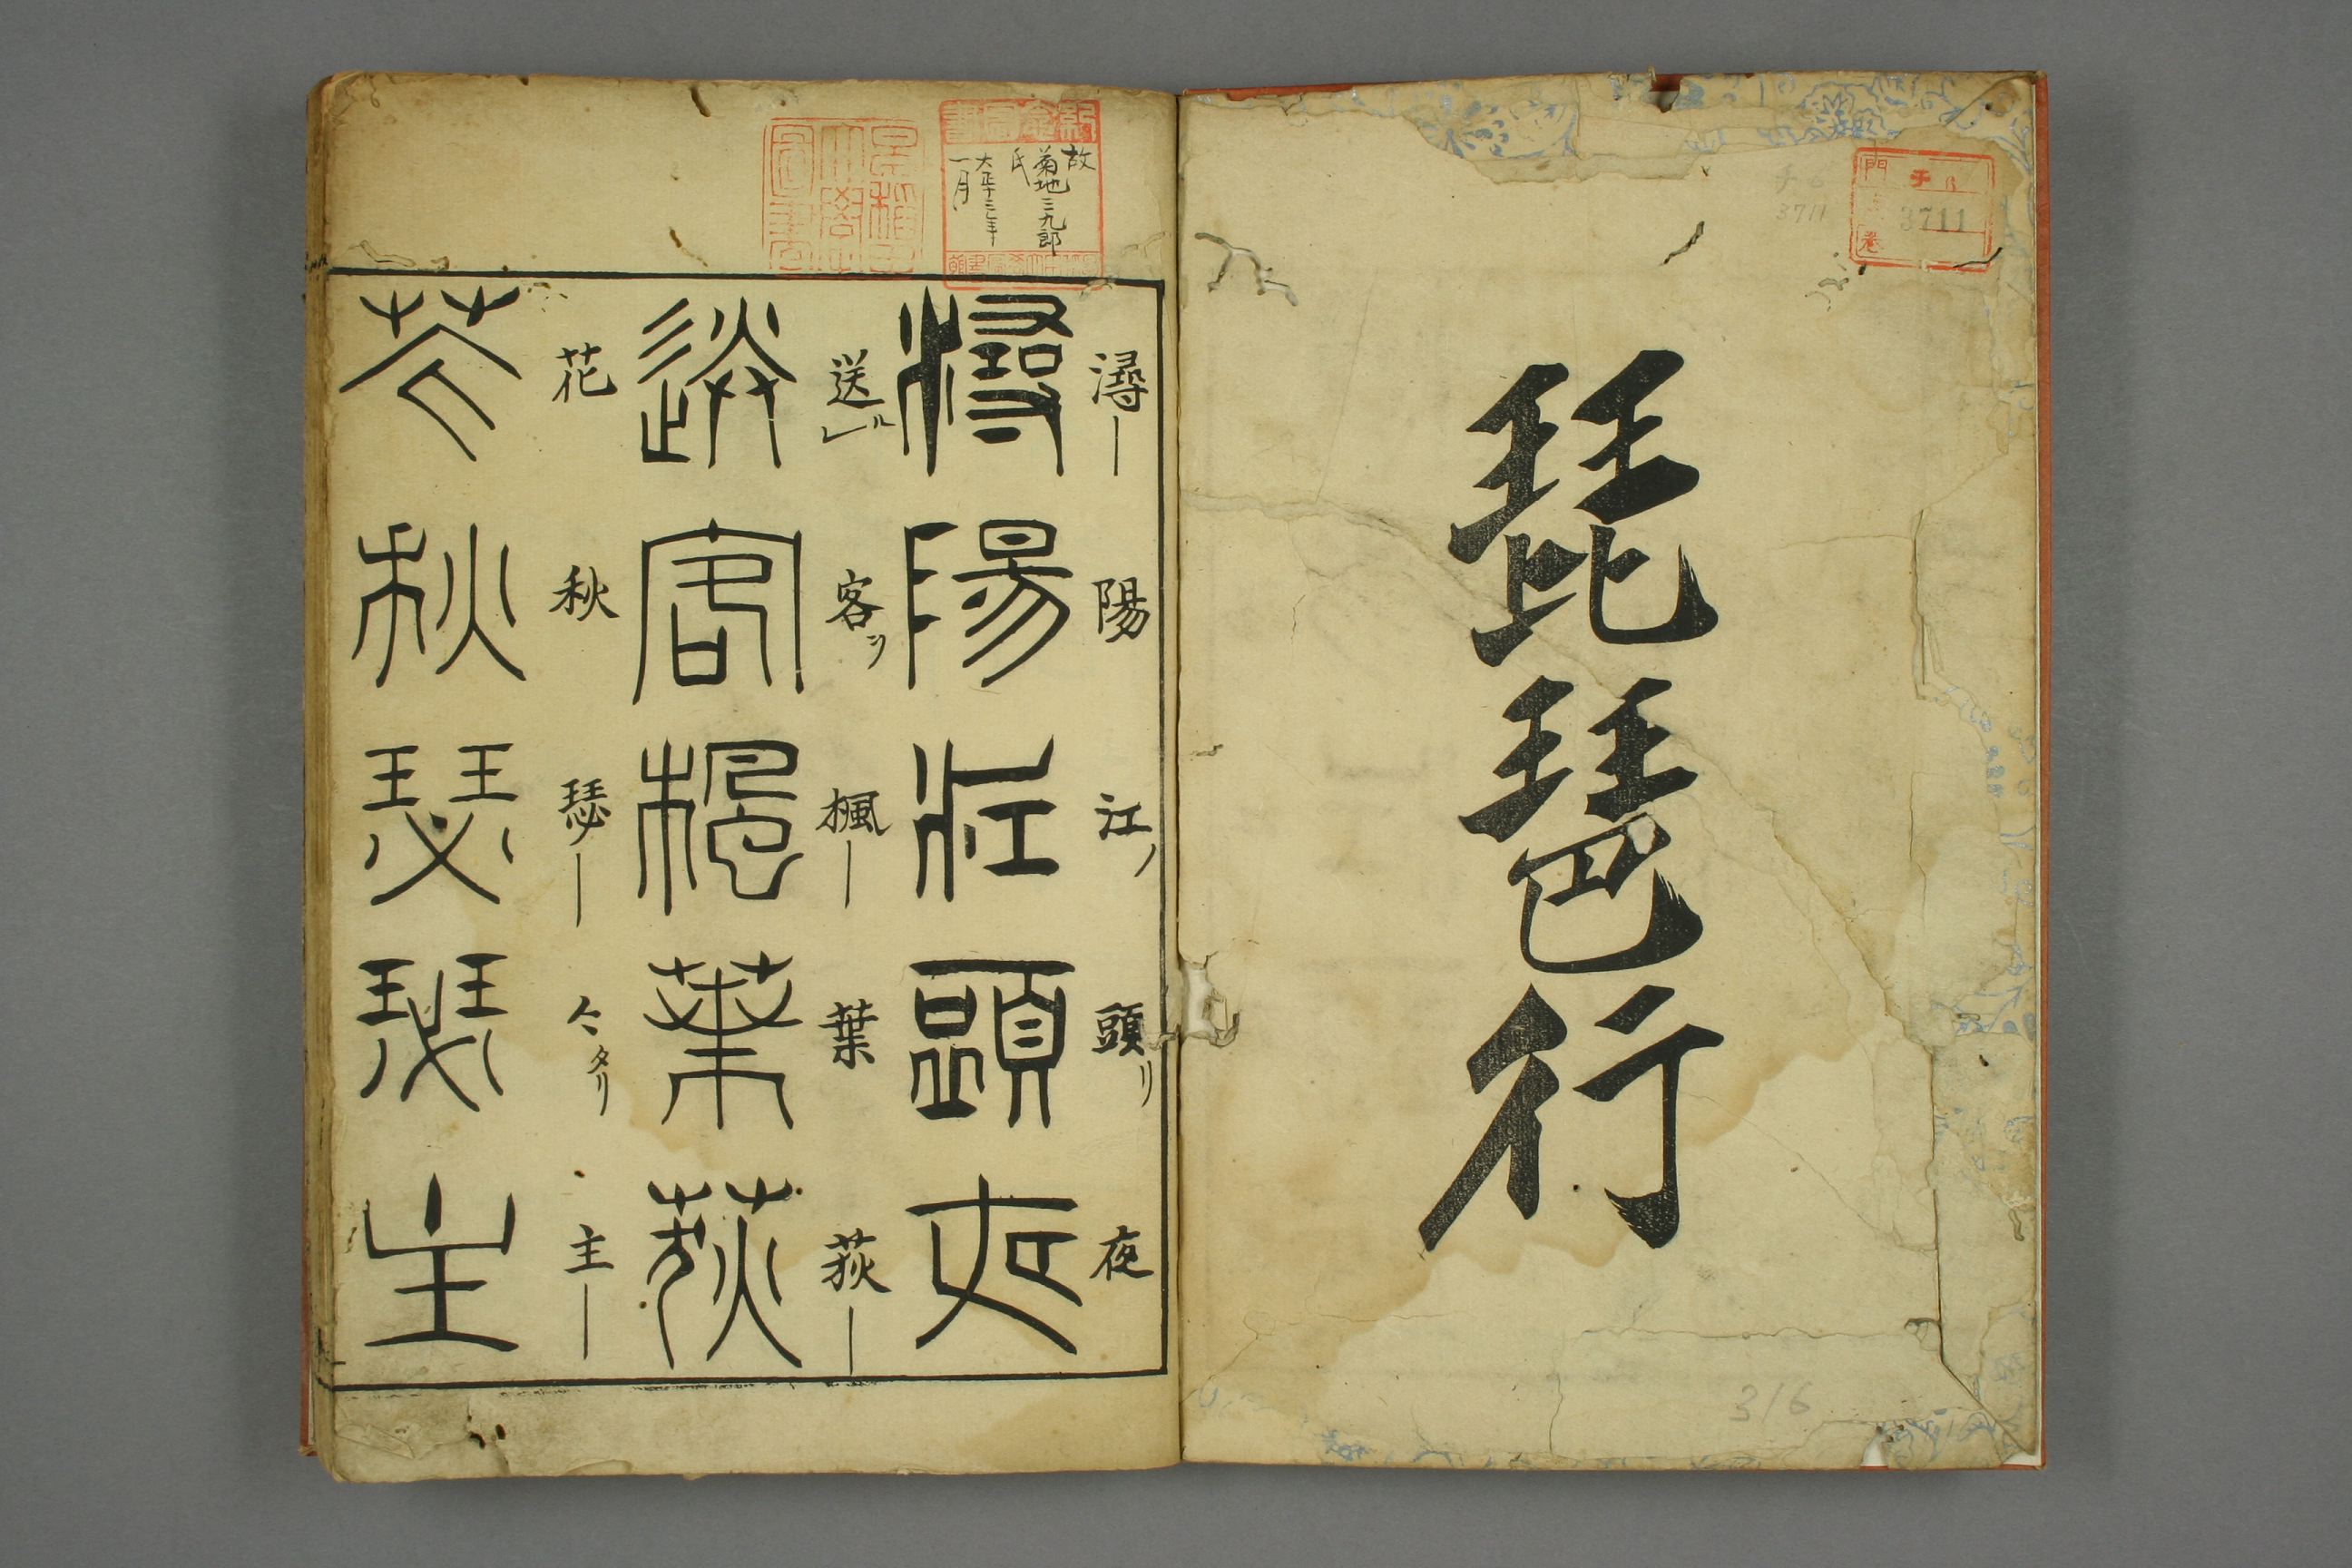 琵琶行
チ6
3711
門
チ 6
3711
卷
316
故
菊地三九郎
氏
大正十三年
一月
早稲田大學圖書
潯― 陽 江ノ 頭リ 夜
潯陽江頭夜
送ルレ 客ヲ 楓― 葉 荻―
送客楓葉荻
花 秋 瑟― 〻タリ 主―
花秋瑟瑟主